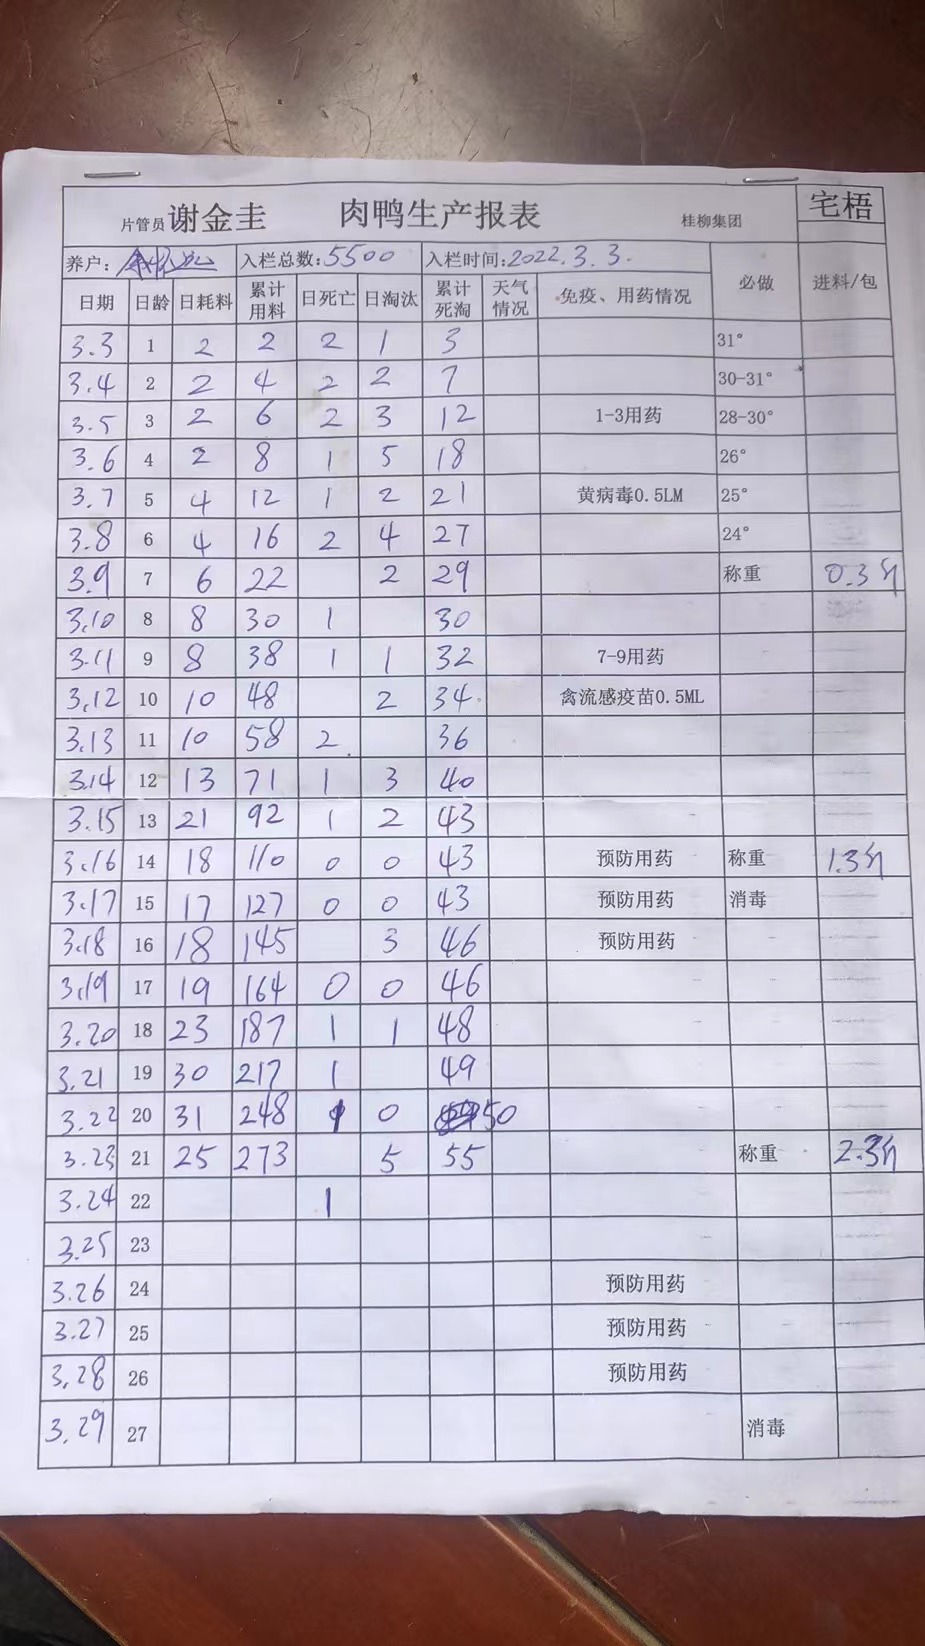 宅梧
片管员 谢金圭 肉鸭生产报表 桂柳集团
养户: 入栏总数:5500 入栏时间:2022.3.3.
日期 日龄 日耗料 累计用料 日死亡 日淘汰 累计死淘 天气情况 免疫、用药情况 必做 进料/包
3.3 1 2 2 2 1 3 31°
3.4 2 2 4 2 2 7 30-31°
3.5 3 2 6 2 3 12 1-3用药 28-30°
3.6 4 2 8 1 5 18 26°
3.7 5 4 12 1 2 21 黄病毒0.5LM 25°
3.8 6 4 16 2 4 27 24°
3.9 7 6 22 2 29 称重 0.3斤
3.10 8 8 30 1 30
3.11 9 8 38 1 1 32 7-9用药
3.12 10 10 48 2 34 禽流感疫苗0.5ML
3.13 11 10 58 2 36
3.14 12 13 71 1 3 40
3.15 13 21 92 1 2 43
3.16 14 18 110 0 0 43 预防用药 称重 1.3斤
3.17 15 17 127 0 0 43 预防用药 消毒
3.18 16 18 145 3 46 预防用药
3.19 17 19 164 0 0 46
3.20 18 23 187 1 1 48
3.21 19 30 217 1 49
3.22 20 31 248 1 0 50
3.23 21 25 273 5 55 称重 2.3斤
3.24 22 1
3.25 23
3.26 24 预防用药
3.27 25 预防用药
3.28 26 预防用药
3.29 27 消毒